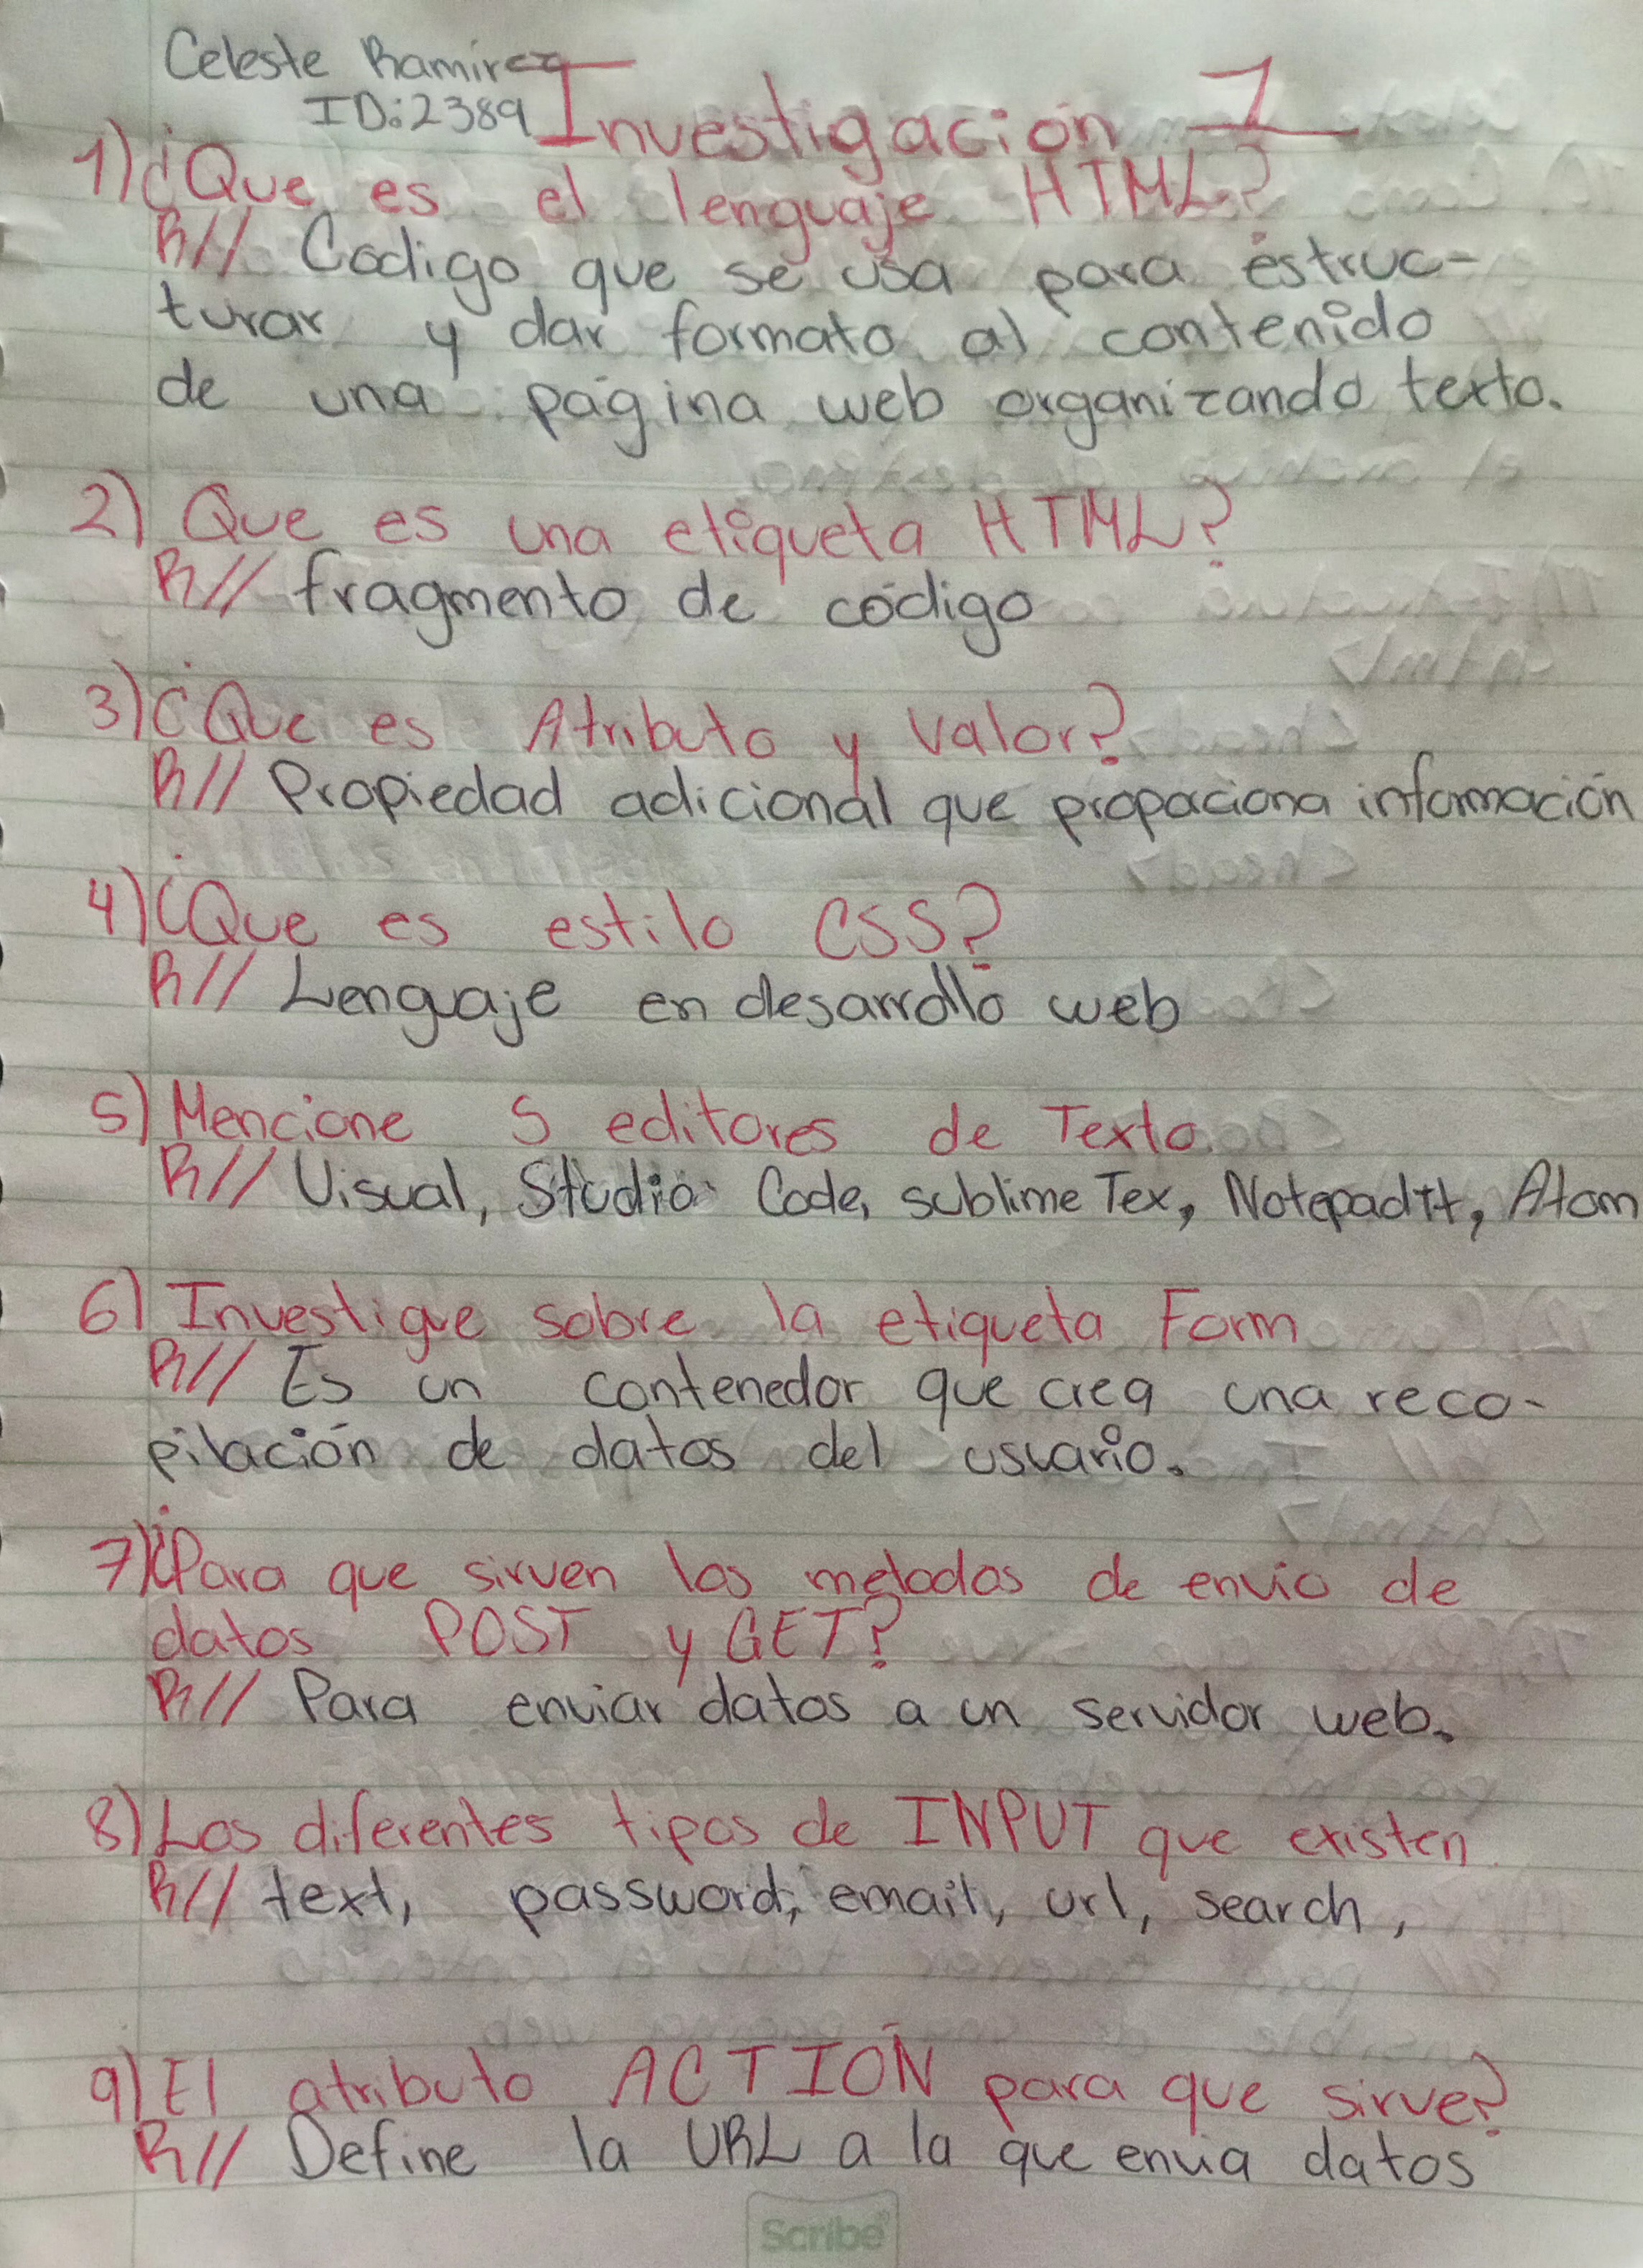 Celeste Ramirez
ID:2389
Investigación 1
1) ¿Que es el lenguaje HTML?
R// Codigo que se usa para estruc-
turar y dar formato al contenido
de una página web organizando texto.
2) Que es una etiqueta HTML?
R// fragmento de código
3) ¿Que es Atributo y valor?
R// Propiedad adicional que proporciona información
4) ¿Que es estilo CSS?
R// Lenguaje en desarrollo web
5) Mencione 5 editores de Texto.
R// Visual, Studio Code, sublime Tex, Notepad++, Atom
6) Investigue sobre la etiqueta Form
R// Es un contenedor que crea una reco-
pilación de datos del usuario.
7) ¿Para que sirven los metodos de envio de
datos POST y GET?
R// Para enviar datos a un servidor web.
8) Los diferentes tipos de INPUT que existen
R// text, password, email, url, search,
9) El atributo ACTIÓN para que sirve?
R// Define la URL a la que envia datos
Scribe